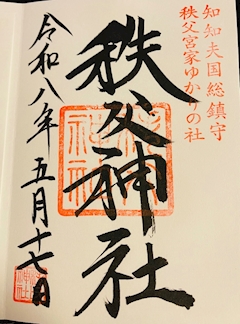 知知夫国総鎮守
秩父宮家ゆかりの社
秩父神社
令和八年五月十七日